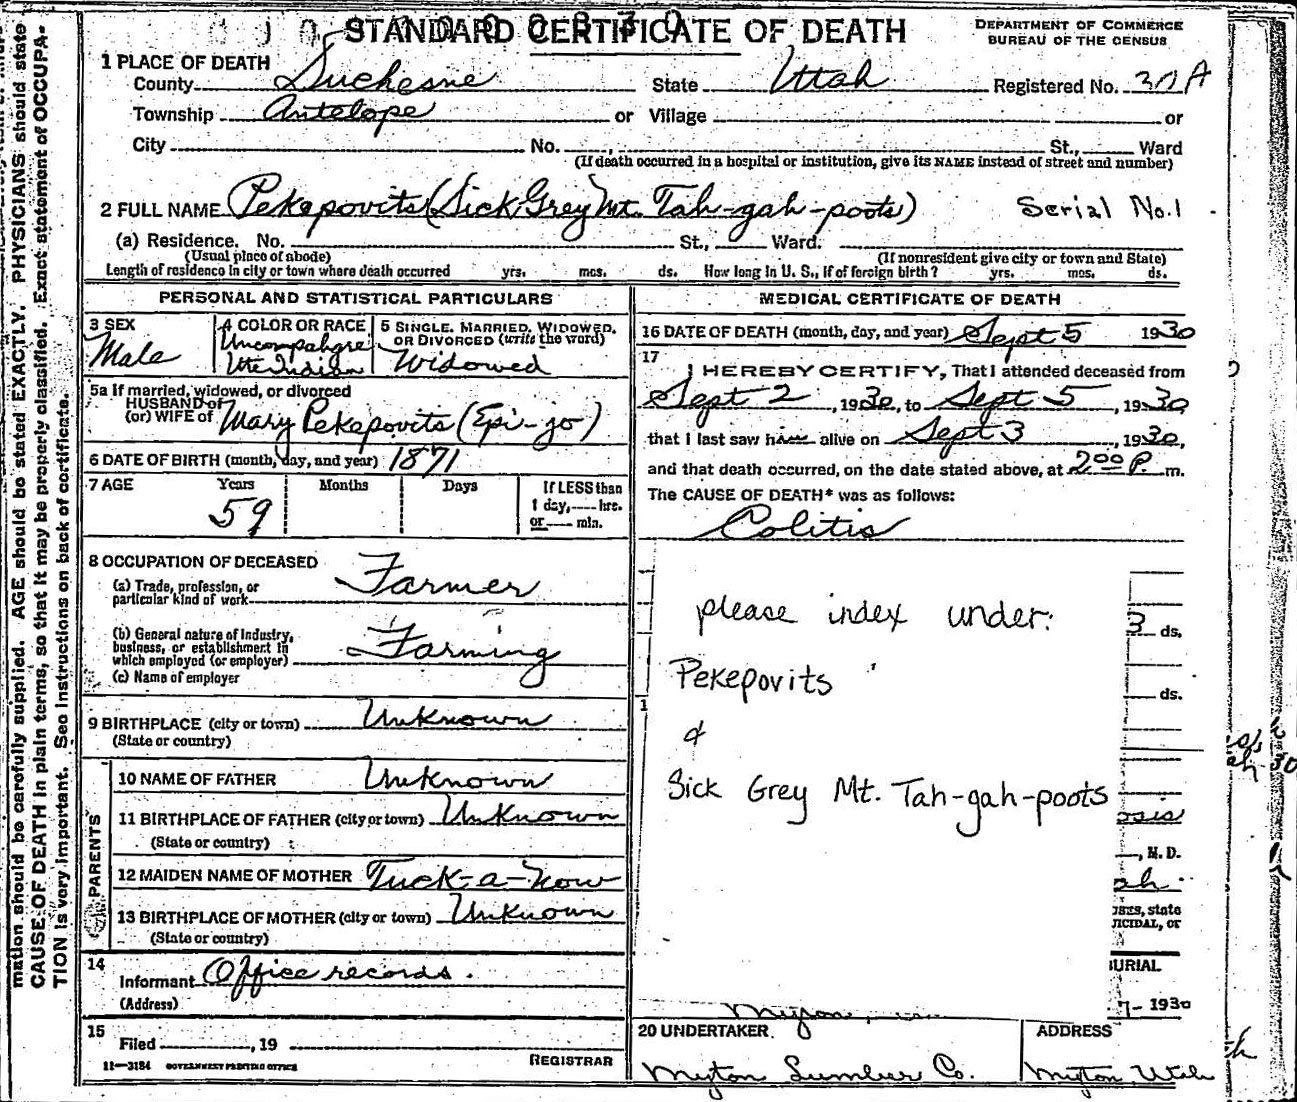 STANDARD CERTIFICATE OF DEATH
DEPARTMENT OF COMMERCE
BUREAU OF THE CENSUS
1 PLACE OF DEATH
County Duchesne State Utah Registered No. 30A
Township Antelope or Village or
City No. , St., Ward
(If death occurred in a hospital or institution, give its NAME instead of street and number)
2 FULL NAME Pekepovits (Sick Grey Mt. Tah-gah-poots) Serial No. 1
(a) Residence. No. St., Ward.
(Usual place of abode) (If nonresident give city or town and State)
Length of residence in city or town where death occurred yrs. mos. ds. How long in U. S., if of foreign birth? yrs. mos. ds.
PERSONAL AND STATISTICAL PARTICULARS
3 SEX
Male
4 COLOR OR RACE
Uncompahgre
Ute Indian
5 SINGLE, MARRIED, WIDOWED,
OR DIVORCED (write the word)
Widowed
5a If married, widowed, or divorced
HUSBAND of
(or) WIFE of Mary Pekepovits (Epi-jo)
6 DATE OF BIRTH (month, day, and year) 1871
7 AGE Years Months Days If LESS than
1 day, hrs.
or min.
59
8 OCCUPATION OF DECEASED
(a) Trade, profession, or
particular kind of work Farmer
(b) General nature of industry,
business, or establishment in
which employed (or employer) Farming
(c) Name of employer
9 BIRTHPLACE (city or town) Unknown
(State or country)
PARENTS
10 NAME OF FATHER Unknown
11 BIRTHPLACE OF FATHER (city or town) Unknown
(State or country)
12 MAIDEN NAME OF MOTHER Tuck-a-now
13 BIRTHPLACE OF MOTHER (city or town) Unknown
(State or country)
14
Informant Office records.
(Address)
15
Filed , 19
REGISTRAR
11—3184 GOVERNMENT PRINTING OFFICE
MEDICAL CERTIFICATE OF DEATH
16 DATE OF DEATH (month, day, and year) Sept 5 1930
17
I HEREBY CERTIFY, That I attended deceased from
Sept 2, 1930, to Sept 5, 1930
that I last saw him alive on Sept 3, 1930,
and that death occurred, on the date stated above, at 2:00 P. m.
The CAUSE OF DEATH* was as follows:
Colitis
please index under:
Pekepovits
&
Sick Grey Mt. Tah-gah-poots
3 ds.
ds.
osis
, M. D.
ah.
state
ICIDAL, or
URIAL
7- 1930
20 UNDERTAKER ADDRESS
Myton Lumber Co. Myton Utah
mation should be carefully supplied. AGE should be stated EXACTLY. PHYSICIANS should state
CAUSE OF DEATH in plain terms, so that it may be properly classified. Exact statement of OCCUPA-
TION is very important. See instructions on back of certificate.